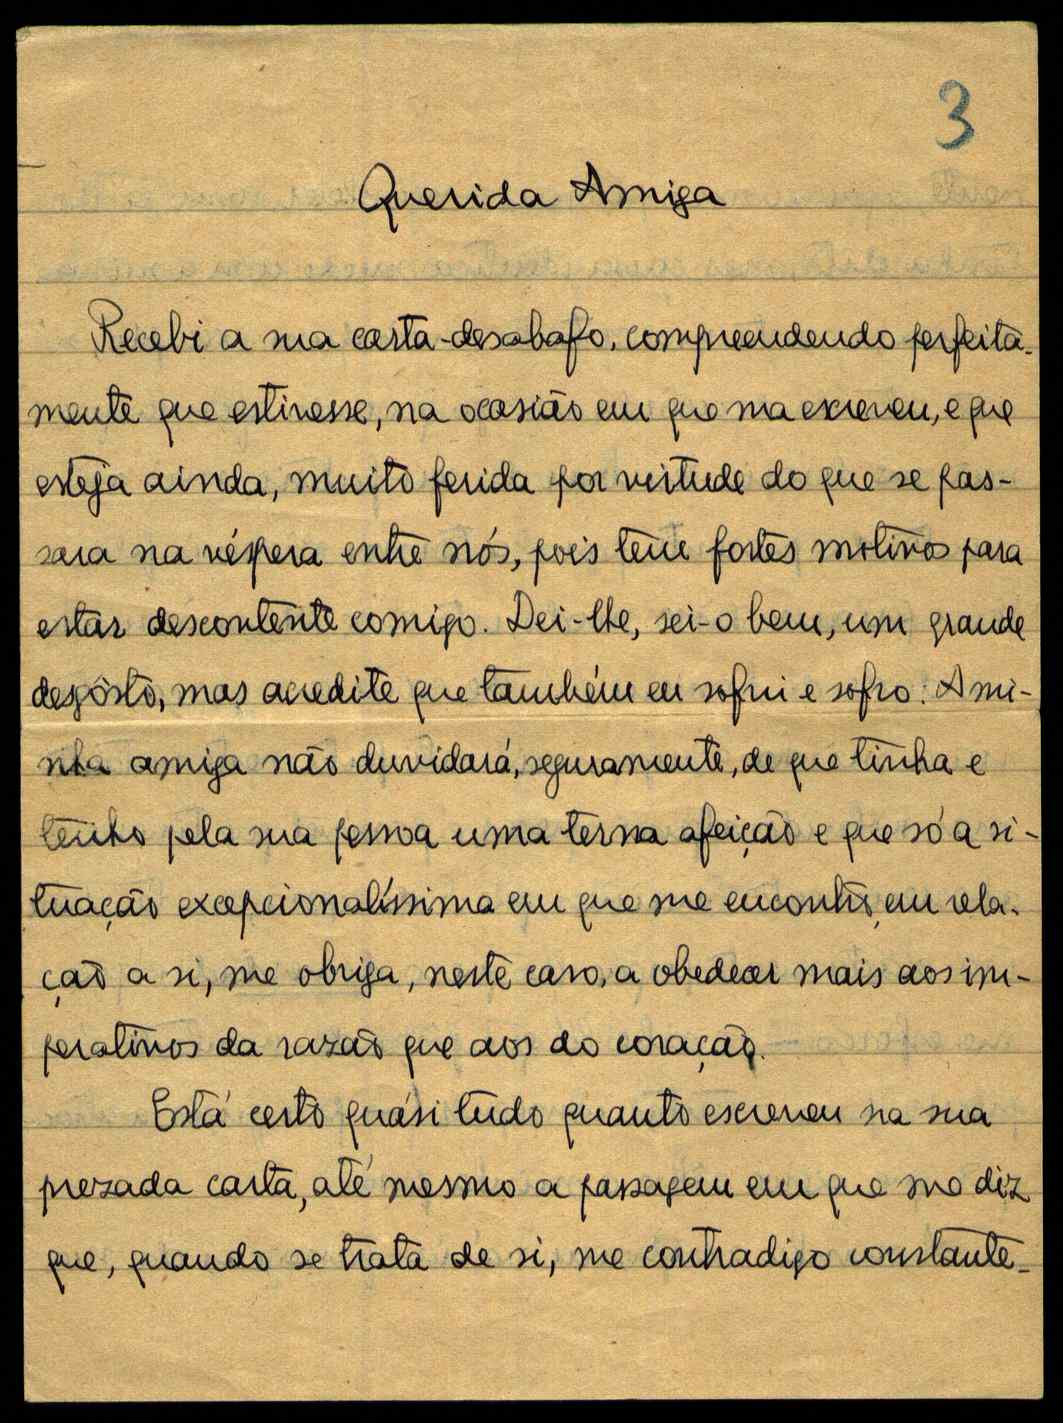 3
Querida Amiga
Recebi a sua carta-desabafo, compreendendo perfeita-
mente que estivesse, na ocasião em que ma escreveu, e que
esteja ainda, muito ferida por virtude do que se pas-
sara na véspera entre nós, pois teve fortes motivos para
estar descontente comigo. Dei-lhe, sei-o bem, um grande
desgôsto, mas acredite que também eu sofri e sofro. A mi-
nha amiga não duvidará, seguramente, de que tinha e
tenho pela sua pessoa uma terna afeição e que só a si-
tuação excepcionalíssima em que me encontro, em rela-
ção a si, me obriga, neste caso, a obedecer mais aos im-
perativos da razão que aos do coração.
Está certo quási tudo quanto escreveu na sua
prezada carta, até mesmo a passagem em que me diz
que, quando se trata de si, me contradigo constante-